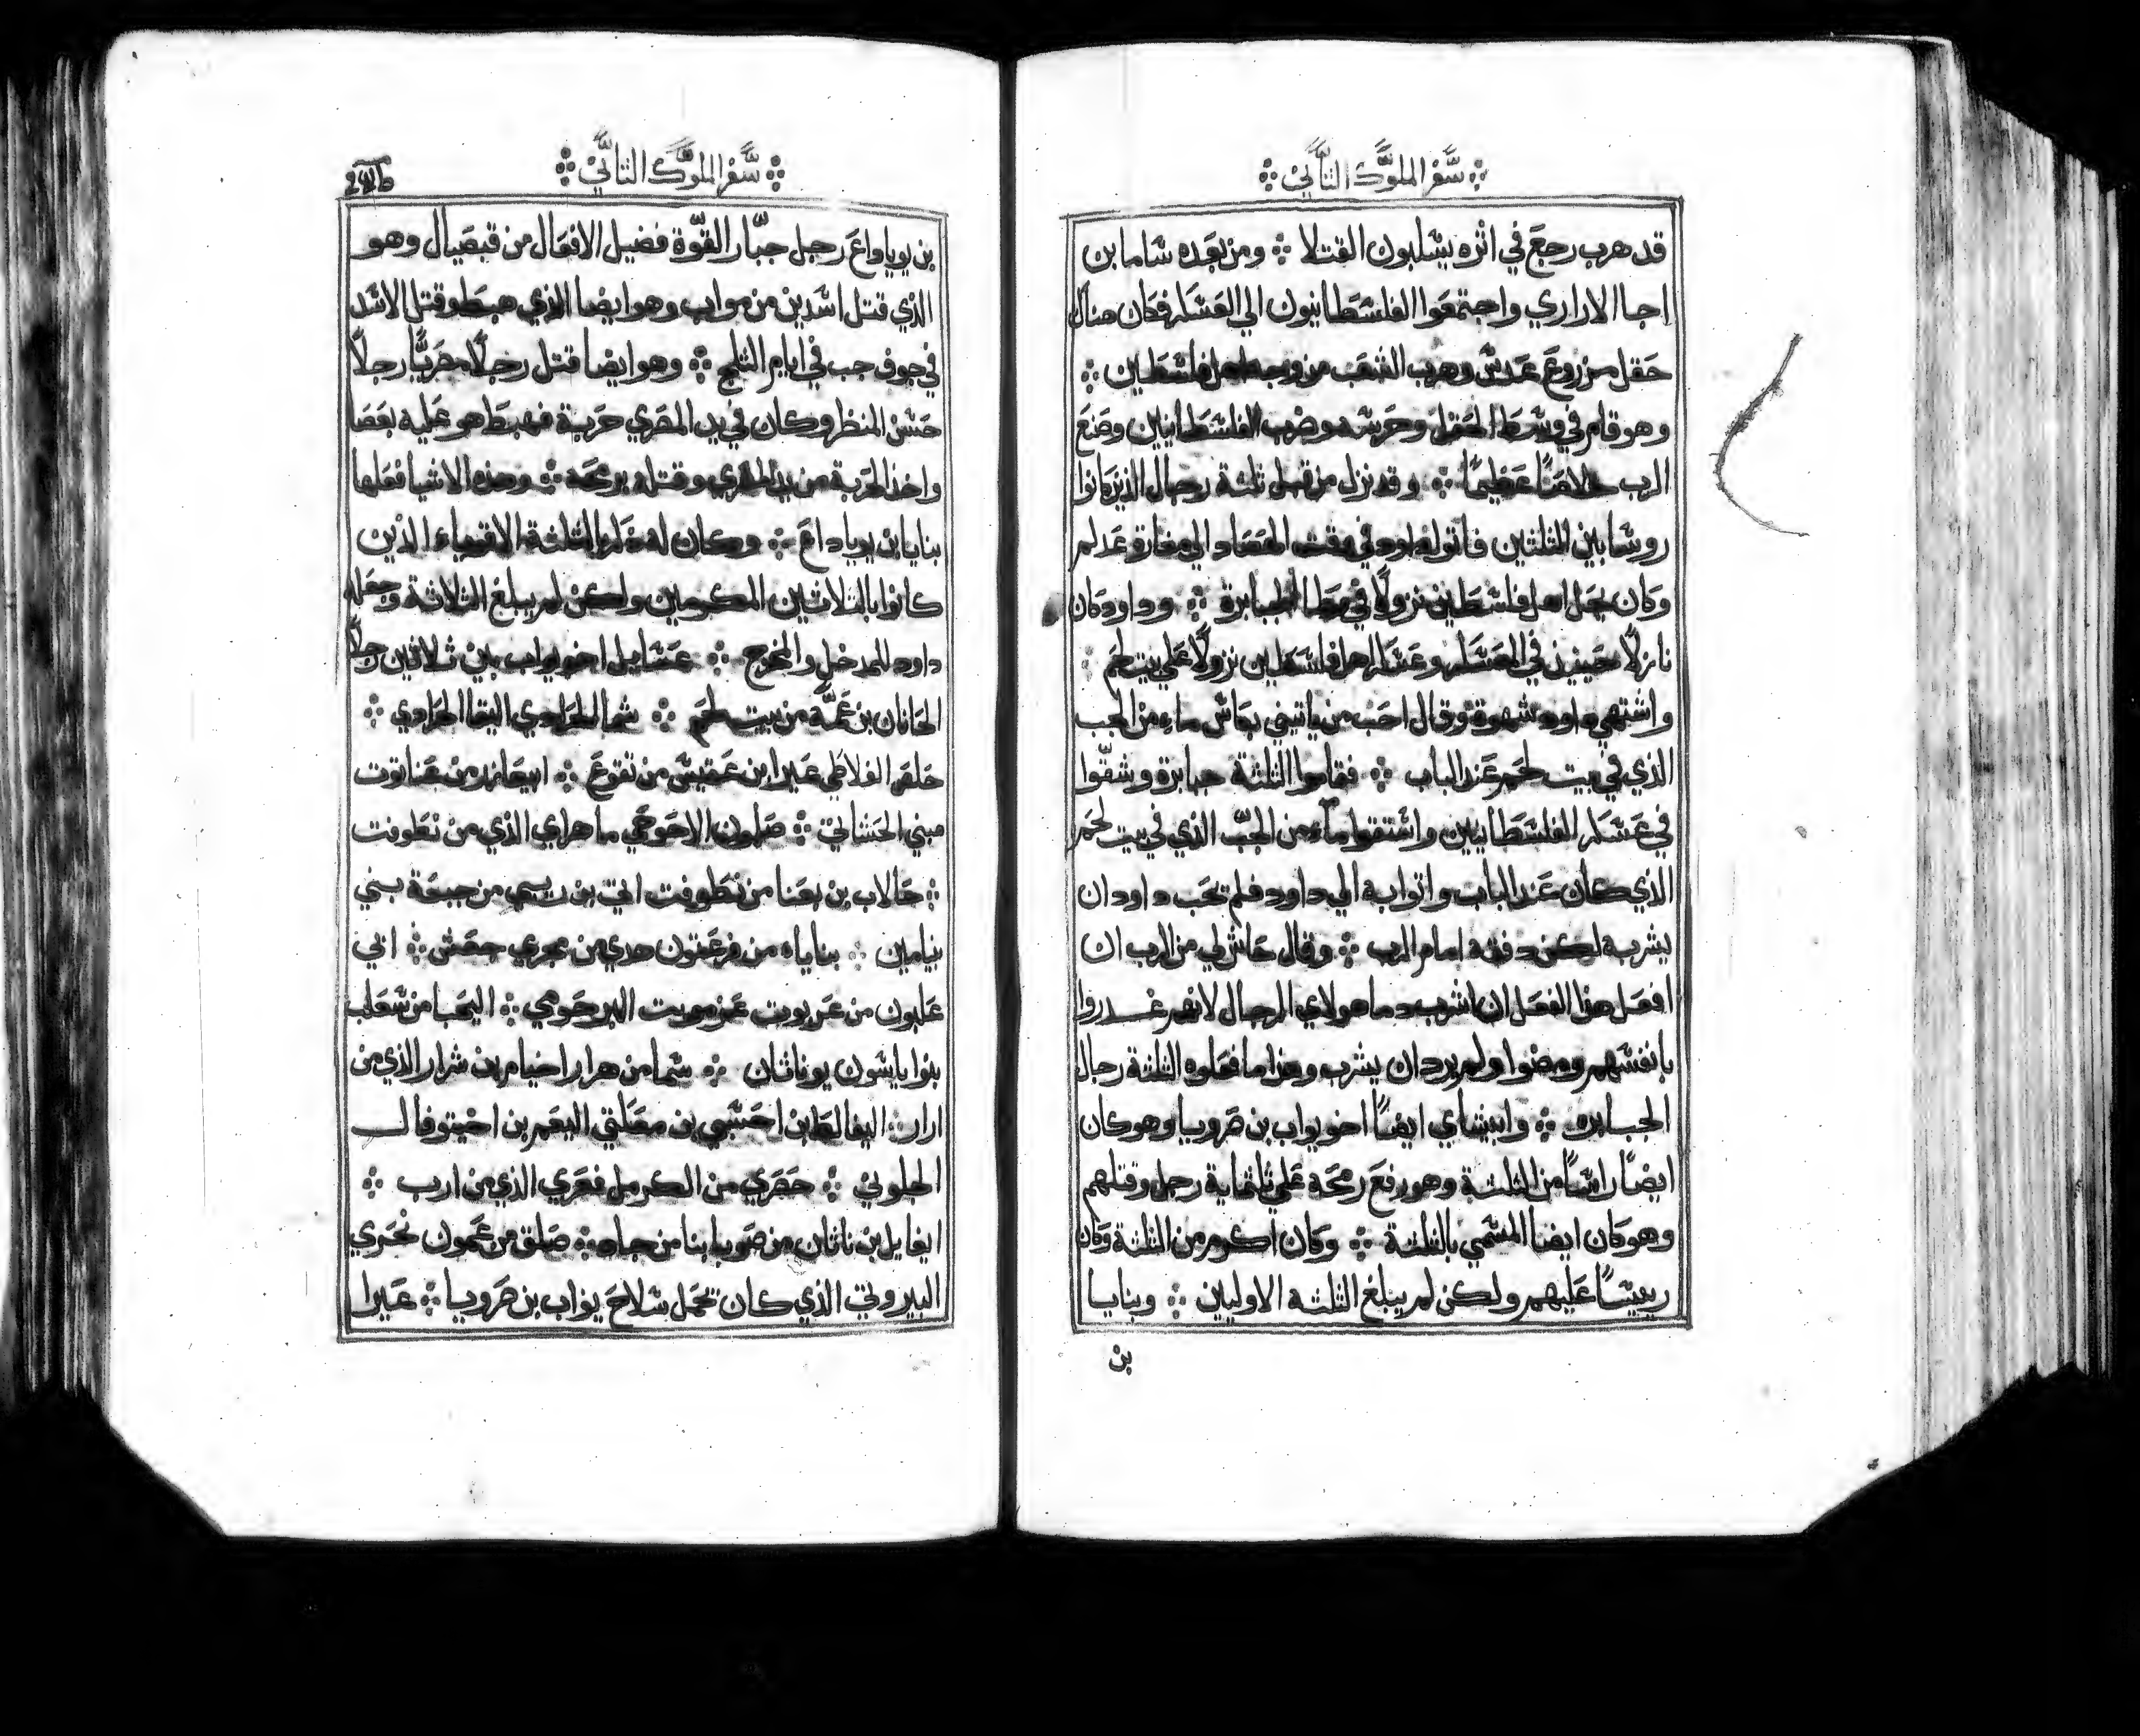 سفر الملوك الثاني
قد هرب رجع في اثره يسلبون القتلا ⁘ ومن بعده شاما بن
اجا الاراري واجتمعوا الفلسطانيون الي العسكر فكان هناك
حقل مزروع عدس وهرب الشعب من وجه اهل فلسطين ⁘
وهو قام في وسط الحقل وحرسه وضرب الفلسطانيين وصنع
الرب خلاصًا عظيمًا ⁘ وقد نزل من قبل ثلثة رجال الذين كانوا
روسا بين الثلثين فاتوا لداود في وقت الحصاد الي مغارة عدلم
وكان جبل اهل فلسطين نزولًا في الجبابرة ⁘ وداود كان
نازلًا حينيذ في العسكر وعسكر اهل فلسطين نزولًا علي بيت لحم ⁘
واشتهي داود شهوة وقال احب من ياتيني بكاس ماء من الجب
الذي في بيت لحم عند الباب ⁘ فقاموا الثلثة جبابرة وشقّوا
في عسكر الفلسطانيين واستقوا ماء من الجبّ الذي في بيت لحم
الذي كان عند الباب واتوا به الي داود فلم يحب داود ان
يشربه لكن دفقه امام الرب ⁘ وقال حاش لي من الرب ان
افعل هذا الفعل ان اشرب دما هولاي الرجال لانهم غدروا
بانفسهم ومضوا ولم يرد ان يشرب وهذا ما فعلوه الثلثة رجال
الجبابره ⁘ وابيشاي ايضًا اخو يواب بن صرويا وهو كان
ايضًا راسًا من الثلثة وهو رفع رمحه علي ثلثماية رجل وقتلهم
وهو كان ايضا المسمي بالثلثة ⁘ وكان اكرم من الثلثة وكان
رييسًا عليهم ولكن لم يبلغ الثلثه الاوليين ⁘ وبنايا
بن
سفر الملوك الثاني
بن يوياداع رجل جبّار القوّة فضيل الافعال من قبصيال وهو
الذي قتل اسدين من مواب وهو ايضا الذي هبط وقتل الاسد
في جوف جب في ايام الثلج ⁘ وهو ايضا قتل رجلًا مصريًّا رجلًا
حسن المنظر وكان في يد المصري حربة فهبط هو عليه بعصا
واخذ الحربة من يد المصري وقتله برمحه ⁘ وهذه الاشيا فعلها
بنايا بن يوياداع ⁘ وكان له الثلثة الاقوياء الذين
كانوا بالثلاثين المكرمين ولكن لم يبلغ الثلاثة وجعله
داود للمدخل والمخرج ⁘ عسايل اخو يواب بين ثلاثين رجلًا
الحانان بن عمّه من بيت لحم ⁘ شما الحرادي اليقا الحرادي ⁘
حلص الفلاطي عيرا ابن عقيس من تقوع ⁘ ابيعازر من عناتوت
مبني الحشاتي ⁘ صلمون الاحوحي ماهراي الذي من نطوفت
⁘ حالاب بن بعنا من نطوفت اتي بن ريبي من جبعة بني
بنيامين ⁘ بناياه من فرعتون هدي من مجري جعش ⁘ ابي
علبون من عربوت عزموت البرحومي ⁘ اليحبا من شعلب
بنوا ياشون يوناثان ⁘ شما من هرار اخيام بن شرار الذي من
ارار ⁘ اليفالط ابن احسبي بن معكتي اليعم بن احيتوفال
الجلوني ⁘ حصري من الكرمل فعري الذي من ارب ⁘
ايغايل بن ناثان من صوبا بنا من جاد ⁘ صلق من عمون نحري
البيروتي الذي كان يحمل سلاح يواب بن صرويا ⁘ عيرا